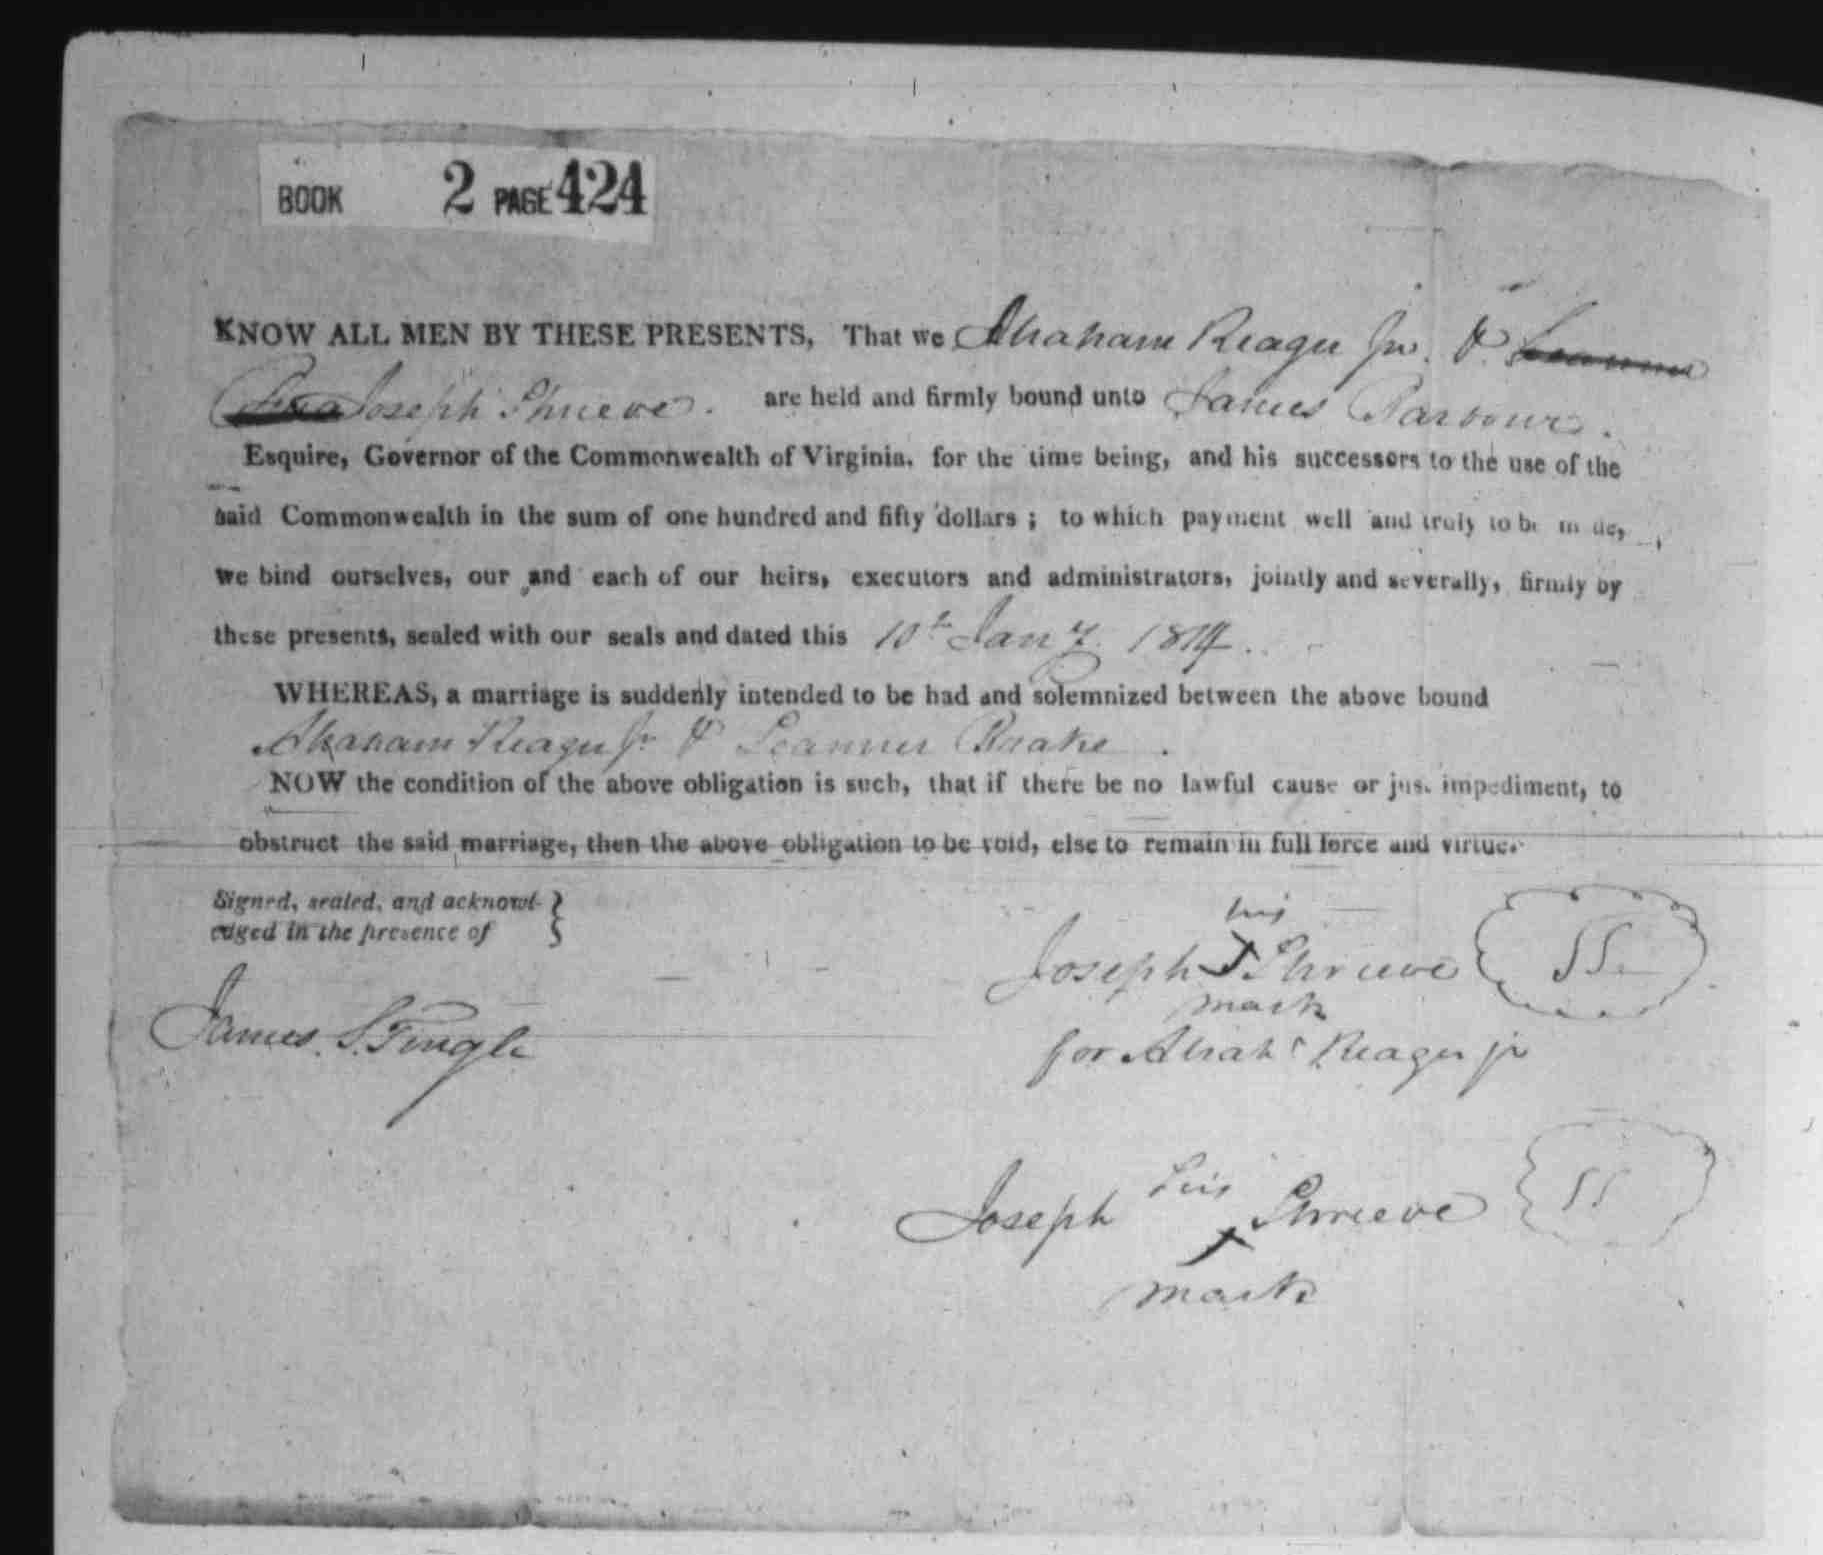 BOOK 2 PAGE 424
KNOW ALL MEN BY THESE PRESENTS, That we Abraham Reager Jr. &
Joseph Shrieve. are held and firmly bound unto James Barbour.
Esquire, Governor of the Commonwealth of Virginia, for the time being, and his successors to the use of the
said Commonwealth in the sum of one hundred and fifty dollars ; to which payment well and truly to be made,
we bind ourselves, our and each of our heirs, executors and administrators, jointly and severally, firmly by
these presents, sealed with our seals and dated this 10th Jany. 1814.
WHEREAS, a marriage is suddenly intended to be had and solemnized between the above bound
Abraham Reager Jr & Leanner
NOW the condition of the above obligation is such, that if there be no lawful cause or just impediment, to
obstruct the said marriage, then the above obligation to be void, else to remain in full force and virtue.
Signed, sealed, and acknowl-
edged in the presence of
his
Joseph Shrieve SS.
mark
James. S. Pringle
for Abrah Reager jr
his
Joseph Shrieve SS
mark